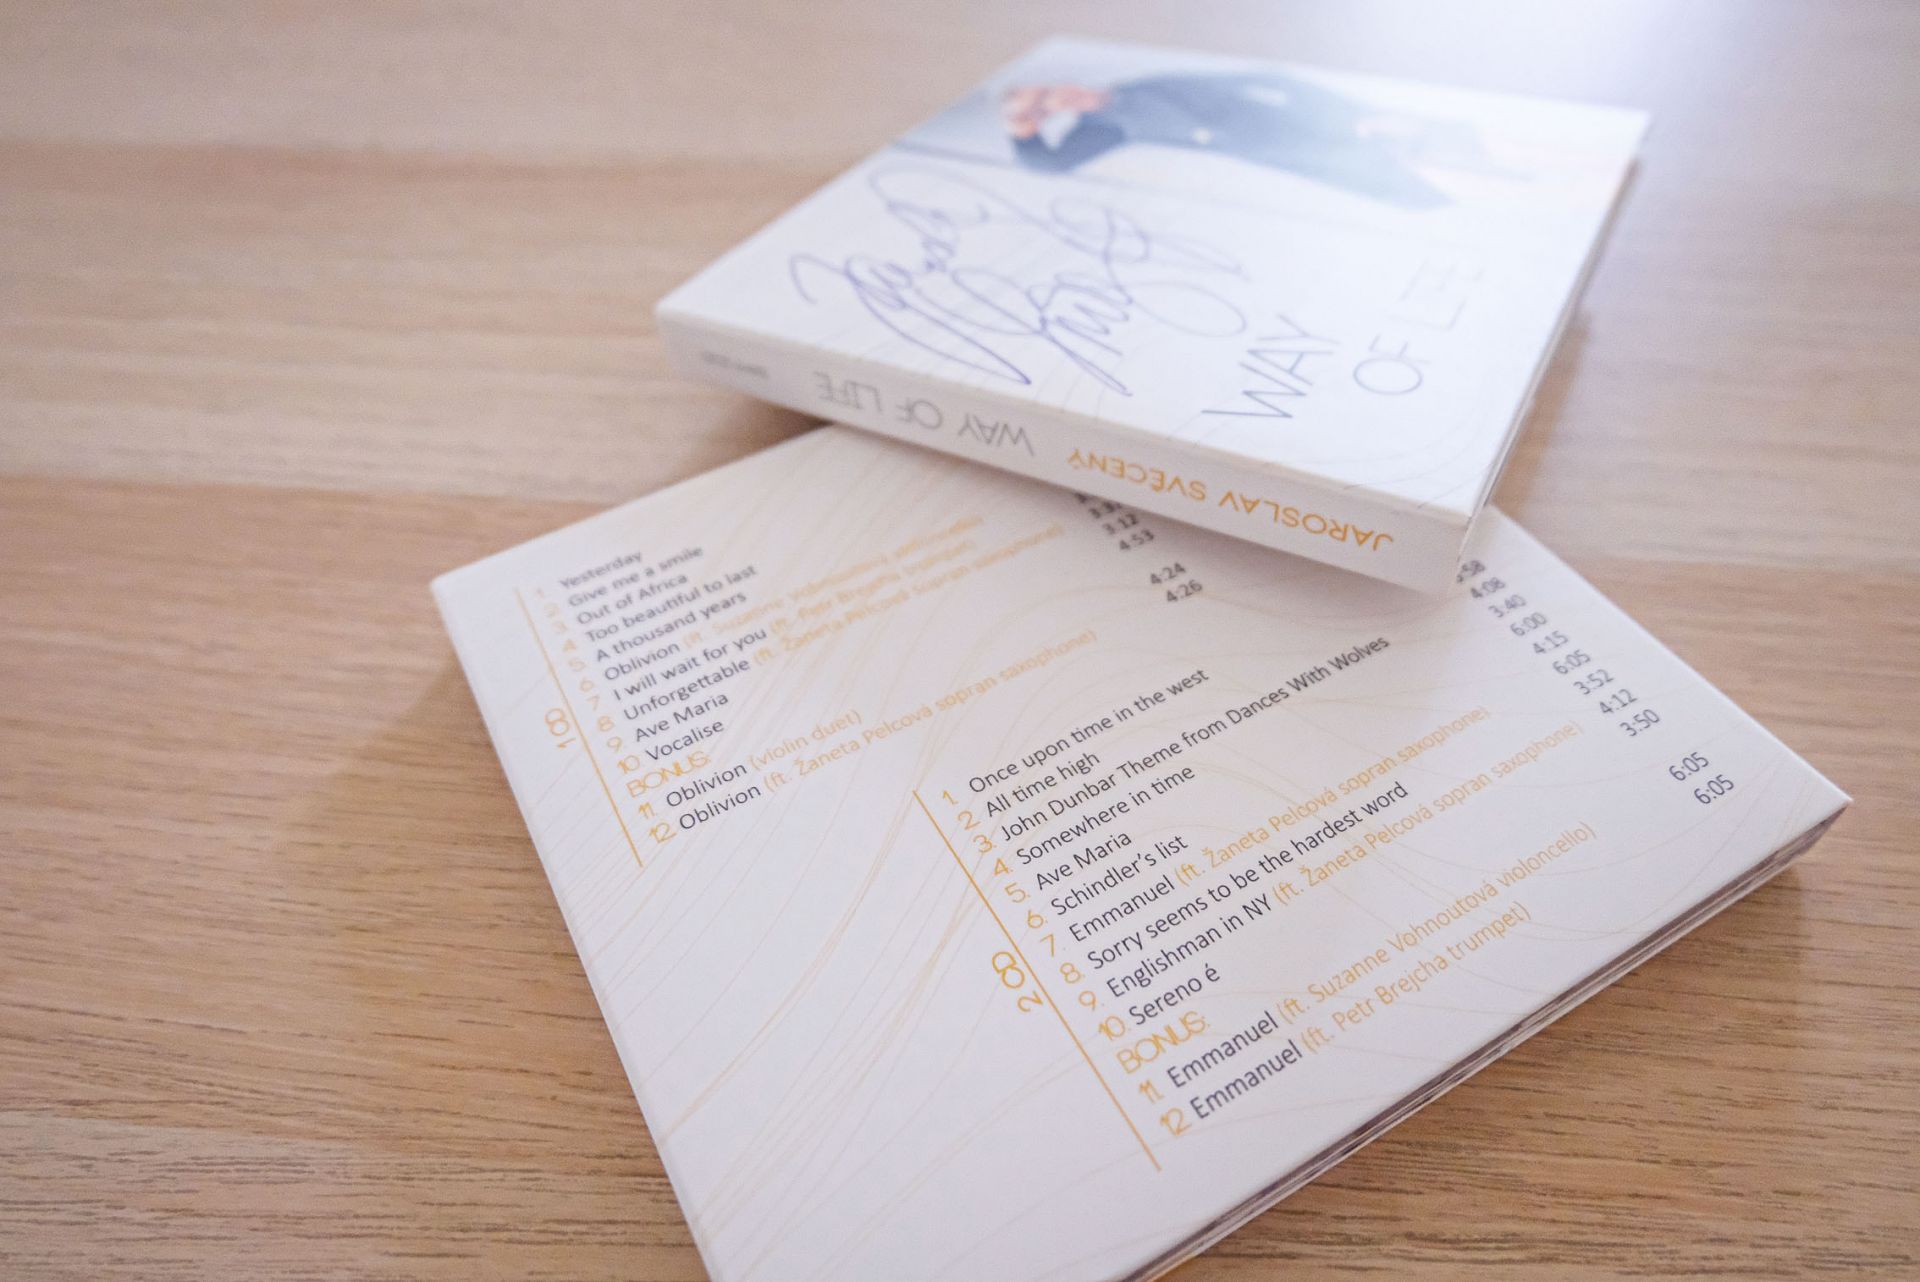 WAY
OF LIFE
JAROSLAV SVĚCENÝ WAY OF LIFE
1CD
1. Yesterday
2. Give me a smile
3. Out of Africa
4. Too beautiful to last
5. A thousand years
6. Oblivion (ft. Suzanne Vohnoutová violoncello)
7. I will wait for you (ft. Petr Brejcha trumpet)
8. Unforgettable (ft. Žaneta Pelcová sopran saxophone)
9. Ave Maria 3:12
10. Vocalise 4:53
BONUS:
11. Oblivion (violin duet) 4:24
12. Oblivion (ft. Žaneta Pelcová sopran saxophone) 4:26
2CD
1. Once upon time in the west
2. All time high :58
3. John Dunbar Theme from Dances With Wolves 4:08
4. Somewhere in time 3:40
5. Ave Maria 6:00
6. Schindler's list 4:15
7. Emmanuel (ft. Žaneta Pelcová sopran saxophone) 6:05
8. Sorry seems to be the hardest word 3:52
9. Englishman in NY (ft. Žaneta Pelcová sopran saxophone) 4:12
10. Sereno é 3:50
BONUS:
11. Emmanuel (ft. Suzanne Vohnoutová violoncello) 6:05
12. Emmanuel (ft. Petr Brejcha trumpet) 6:05